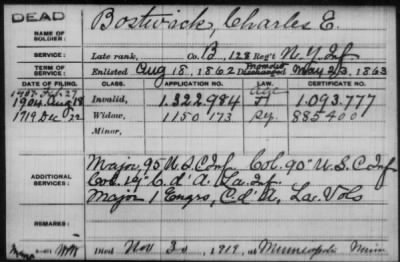 DEAD
NAME OF SOLDIER: Bostwick, Charles E.
SERVICE: Late rank, Co. B, 128 Reg't N.Y. Inf
TERM OF SERVICE: Enlisted Aug 18, 1862 Discharged May 23, 1863
DATE OF FILING. CLASS. APPLICATION NO. LAW. CERTIFICATE NO.
1904 Aug 18 Invalid, 1.322.984 1.093.777
1919 Dec 22 Widow, 1150 173 885400
Minor,
ADDITIONAL SERVICES: Major, 95 U.S.C Inf. Col. 90" U.S.C Inf
Col. 1st C. d' A. La. Inf.
Major 1 Engrs, C. d' A, La. Vols
REMARKS:
Died Nov 30, 1919, at Minneapolis Minn